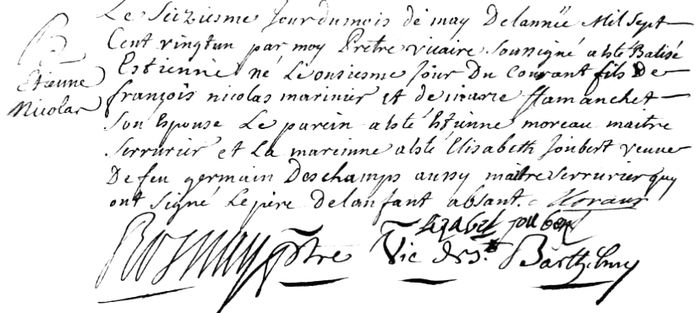 Le Seiziesme Jour du mois de may De Lannée Mil Sept
Cent vingt un par moy Prêtre vicaire Soussigné a esté Batisé
B
Etienne
Nicolas
Estienne né Le onsiesme Jour Du Courant fils De
françois nicolas marinier et de marie flamanchet
Son Espouse Le parein a esté Estienne moreau maitre
Serrurier et La mareinne a esté Elisabeth Joubert veuve
De feu germain Deschamps aussy maitre serrurier quy
ont signé Le pere de Lanfant absant. Moreau
Elizabet joubert
ptre Vic de St Barthelmy